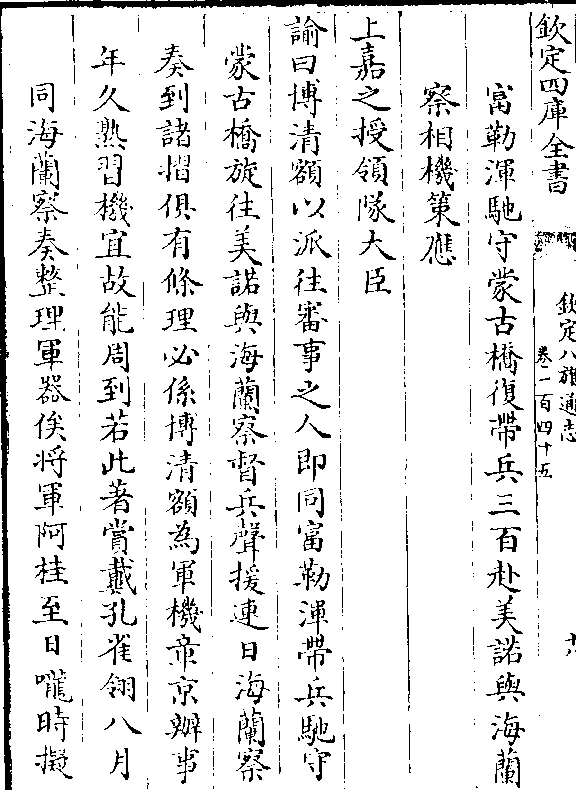 欽定四庫全書
欽定八旗通志
卷一百四十五
富勒渾馳守蒙古橋復帶兵三百赴美諾與海蘭
察相機策應
上嘉之授領隊大臣
諭曰博清額以派往審事之人即同富勒渾帶兵馳守
蒙古橋旋往美諾與海蘭察督兵聲援連日海蘭察
奏到諸摺俱有條理必係博清額為軍機章京辦事
年久熟習機宜故能周到若此著賞戴孔雀翎八月
同海蘭察奏整理軍器俟将軍阿桂至日嚨時擬